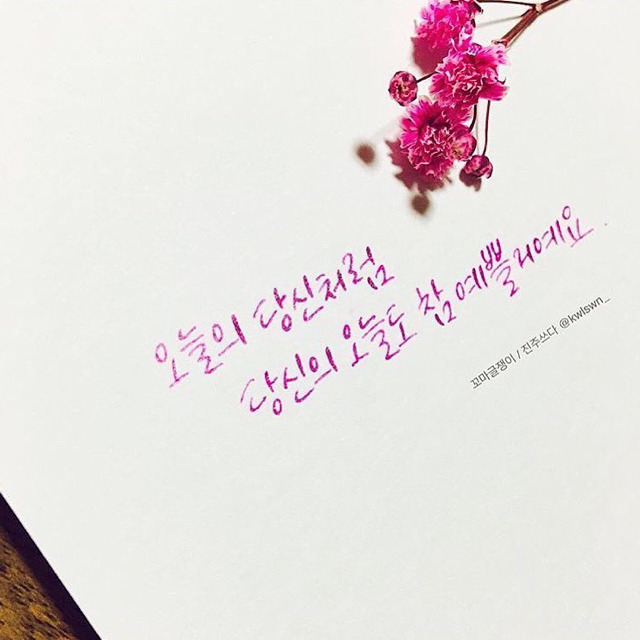 오늘의 당신처럼
당신의 오늘도 참 예쁠거예요.
꼬마글쟁이 / 진주쓰다 @kwlswn_